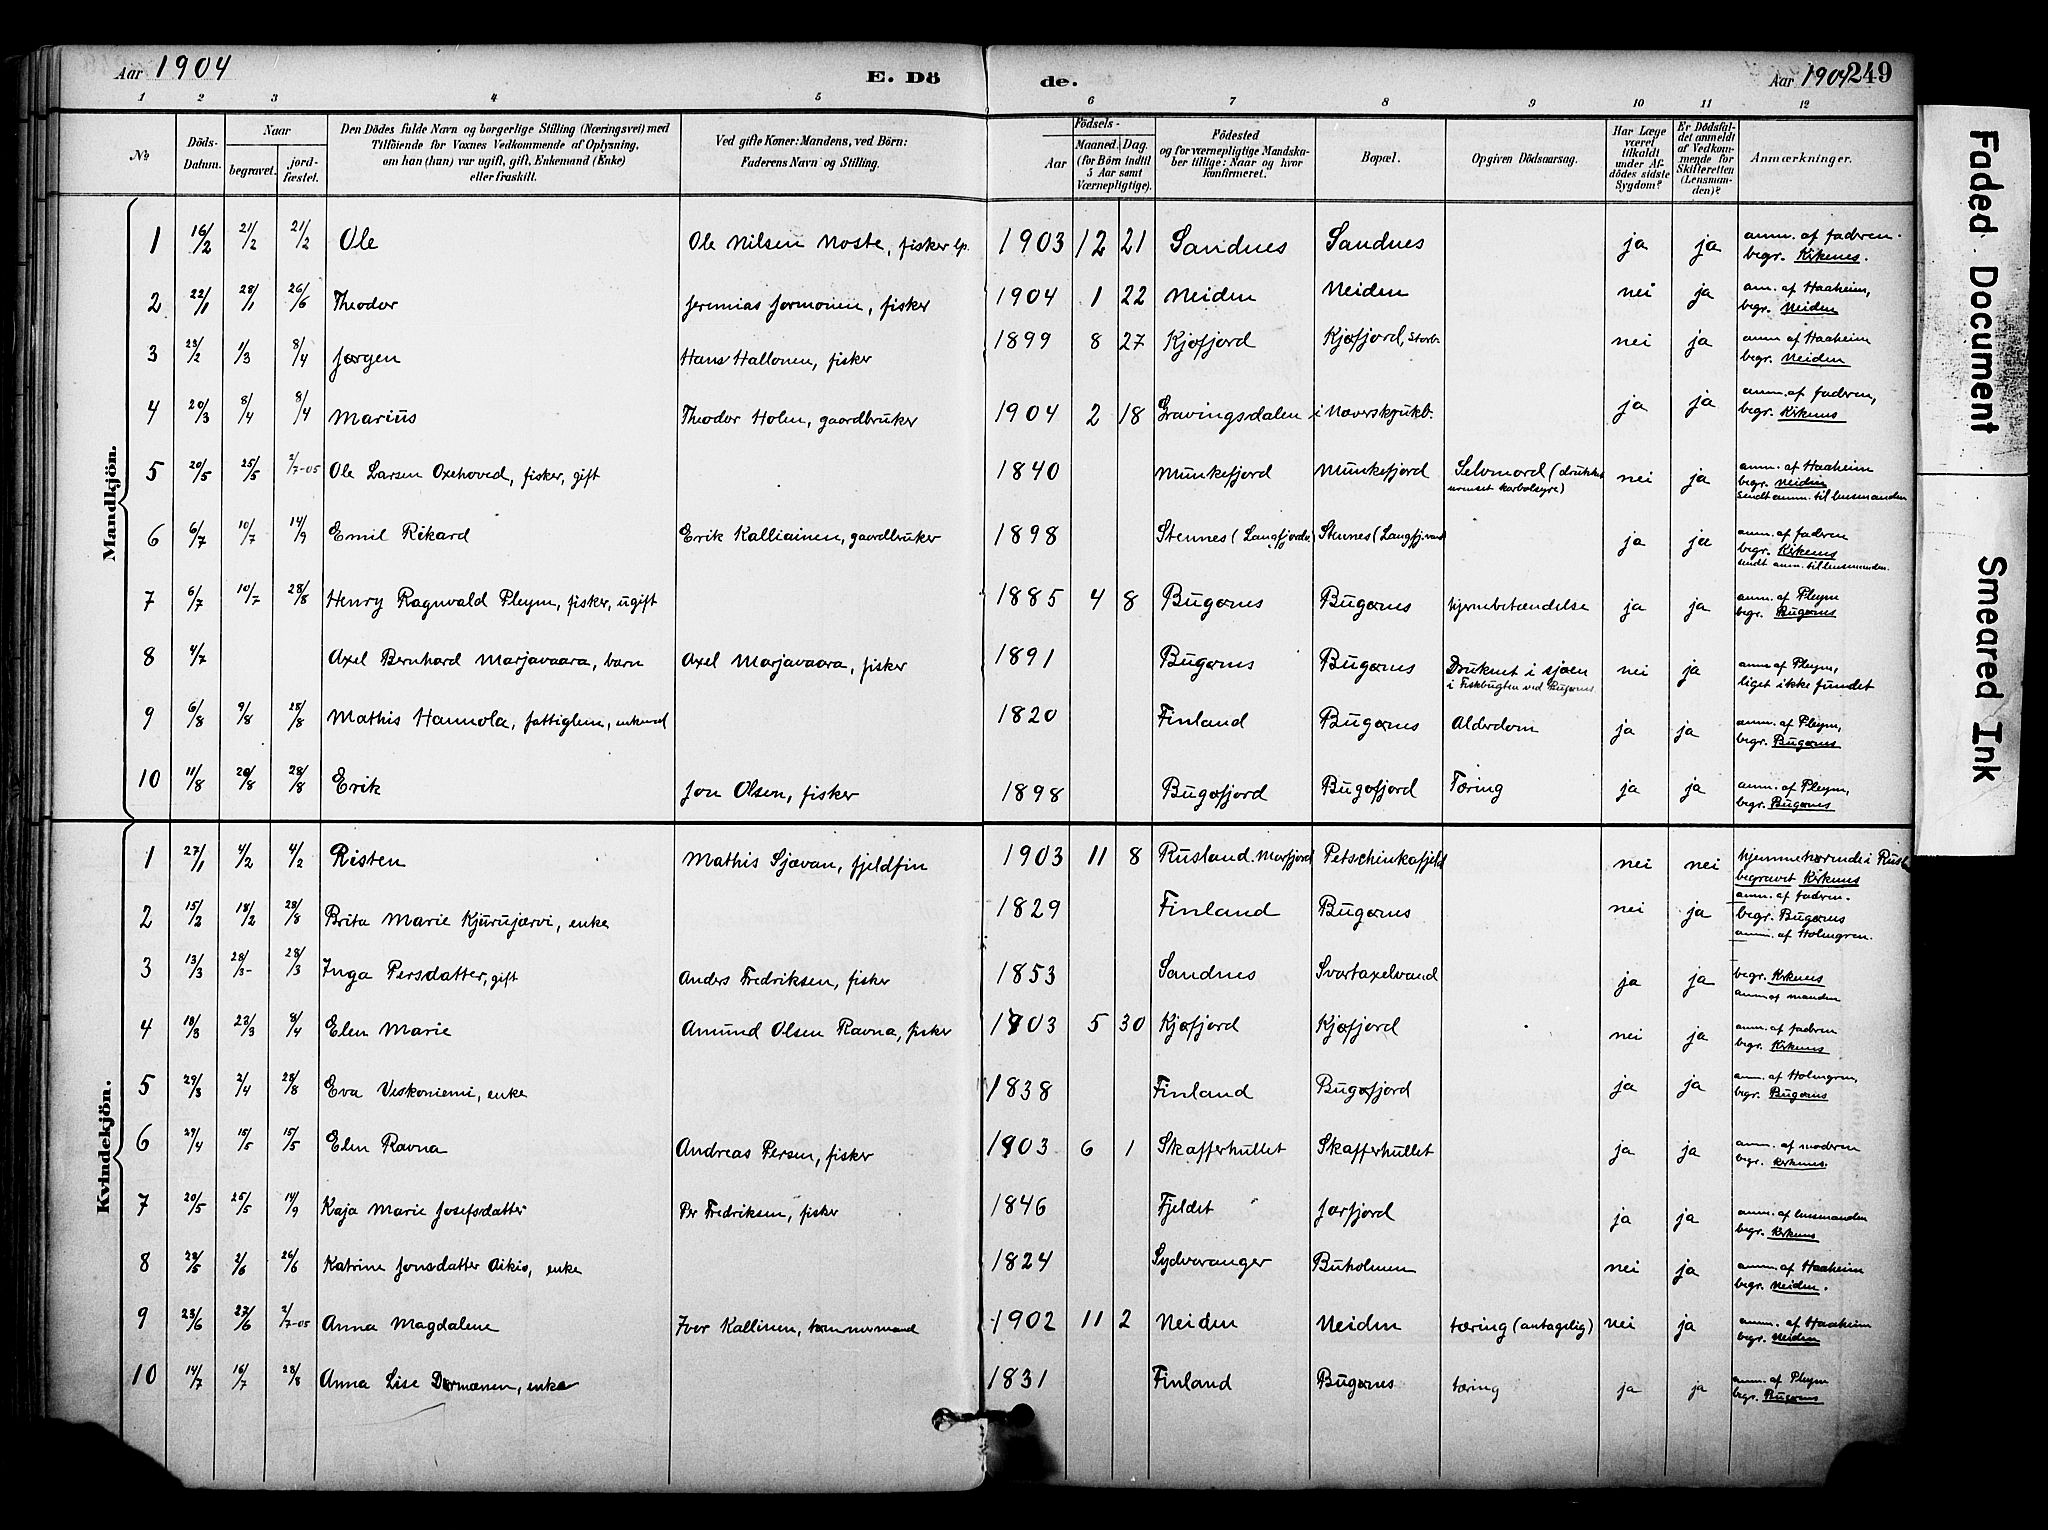 Aar 1904 E. Dö de. Aar 1904 249
1 2 3 4 5 6 7 8 9 10 11 12
№ Döds-Datum. Naar begravet. jord-fæstet. Den Dödes fulde Navn og borgerlige Stilling (Næringsvei) med Tilföiende for Voxnes Vedkommende af Oplysning, om han (hun) var ugift, gift, Enkemand (Enke) eller fraskilt. Ved gifte Koner: Mandens, ved Börn: Faderens Navn og Stilling. Födsels- Aar Maaned. Dag. (for Börn indtil 5 Aar samt Værnepligtige). Födested og for værnepligtige Mandska-ber tillige: Naar og hvor konfirmeret. Bopæl. Opgiven Dödsaarsag. Har Læge været tilkaldt under Af-dödes sidste Sygdom? Er Dödsfal-det anmeldt af Vedkom-mende for Skifteretten (Lensman-den)? Anmærkninger.
Mandkjön.
1 16/2 21/2 21/2 Ole Ole Nilsen Noste, fisker lp. 1903 12 21 Sandnes Sandnes ja ja anm. af faderen. begr. Kirkenes.
2 22/1 28/1 26/6 Theodor Jeremias Jormonen, fisker 1904 1 22 Neiden Neiden nei ja anm. af Haaheim, begr. Neiden
3 23/2 1/3 8/4 Jørgen Hans Hallonen, fisker 1899 8 27 Kjøfjord Kjøfjord, Storb. nei ja anm. af Haaheim begr. Neiden
4 20/3 8/4 8/4 Marius Theodor Holen, gaardbruker 1904 2 18 Gravingsdalen i Næverskrukb. ja ja anm. af faderen, begr. Kirkenes
5 20/5 25/5 2/7-05 Ole Larsen Oxehoved, fisker, gift 1840 Munkefjord Munkefjord Selvmord (drukket urenset karbolsyre) nei ja anm. af Haaheim begr. Neiden sendt anm. til lensmanden
6 6/7 10/7 14/9 Emil Rikard Erik Kalliainen, gaardbruker 1898 Stennes (Langfjordv. Stennes (Langfj.vand ja ja anm. af faderen begr. Kirkenes sendt anm. til lensmanden.
7 6/7 10/7 28/8 Henry Ragnvald Pleym, fisker, ugift 1885 4 8 Bugøenes Bugøenes hjernebetændelse ja ja anm. af Pleym begr. Bugønes
8 4/7 Axel Bernhard Marjavaara, barn Axel Marjavaara, fisker 1891 Bugønes Bugønes Druknet i sjøen i Fiskbugten ved Bugønes nei ja anm. af Pleym, liget ikke fundet
9 6/8 9/8 28/8 Mathis Hannola, fattiglem, enkemd 1820 Finland Bugønes Alderdom ja ja anm. af Pleym, begr. Bugønes
10 11/8 20/8 28/8 Erik Jon Olsen, fisker 1898 Bugøfjord Bugøfjord Tæring ja ja anm. af Pleym, begr. Bugønes
Kvindekjön.
1 27/1 4/2 4/2 Risten Mathis Sjævan, fjeldfin 1903 11 8 Rusland. Petschinkafjeld nei nei hjemmehørende i Rusl. begravet Kirkenes anm. af faderen.
2 15/2 18/2 28/8 Brita Marie Kjurujærvi, enke 1829 Finland Bugønes nei ja begr. Bugønes anm. af Holmgren.
3 13/3 28/3 28/3 Inga Persdatter, gift Anders Fredriksen, fisker 1853 Sandnes Svartaxelvand ja ja begr. Kirkenes anm. af manden
4 18/3 23/3 8/4 Elen Marie Amund Olsen Ravna, fisker 1903 5 30 Kjøfjord Kjøfjord nei ja anm. af faderen begr. Kirkenes
5 29/3 2/4 28/8 Eva Veskoniemi, enke 1838 Finland Bugøfjord ja ja anm. af Holmgren, begr. Bugønes
6 29/4 15/5 15/5 Elen Ravna Andreas Persen, fisker 1903 6 1 Skafferhullet Skafferhullet ja ja anm. af moderen begr. Kirkenes.
7 20/5 25/5 14/9 Kaja Marie Josefsdatter Per Fredriksen, fisker 1846 Fjeldet Jarfjord ja ja anm. af lensmanden begr. Kirkenes
8 28/5 2/6 26/6 Katrine Jonsdatter Aikis, enke 1824 Sydvaranger Buholmen nei ja anm. af Haaheim begr. Neiden.
9 23/6 27/6 2/7-05 Anna Magdalene Iver Kallinen, tømmermand 1902 11 2 Neiden Neiden tæring (antagelig) nei ja anm. af Haaheim begr. Neiden
10 14/7 16/7 28/8 Anna Lise Dørmænen, enke 1831 Finland Bugønes tæring ja ja anm. af Pleym begr. Bugønes
Faded Document
Smeared Ink